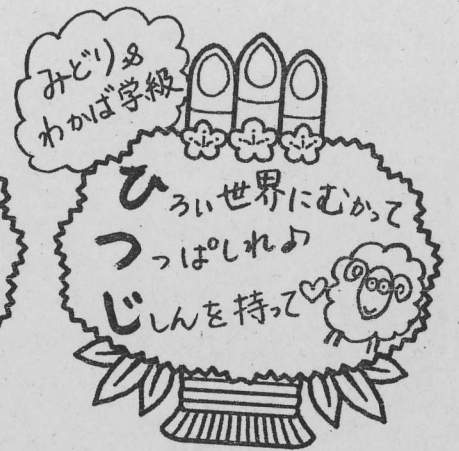 みどり&
わかば学級
ひろい世界にむかって
つっぱしれ♪
じしんを持って♡